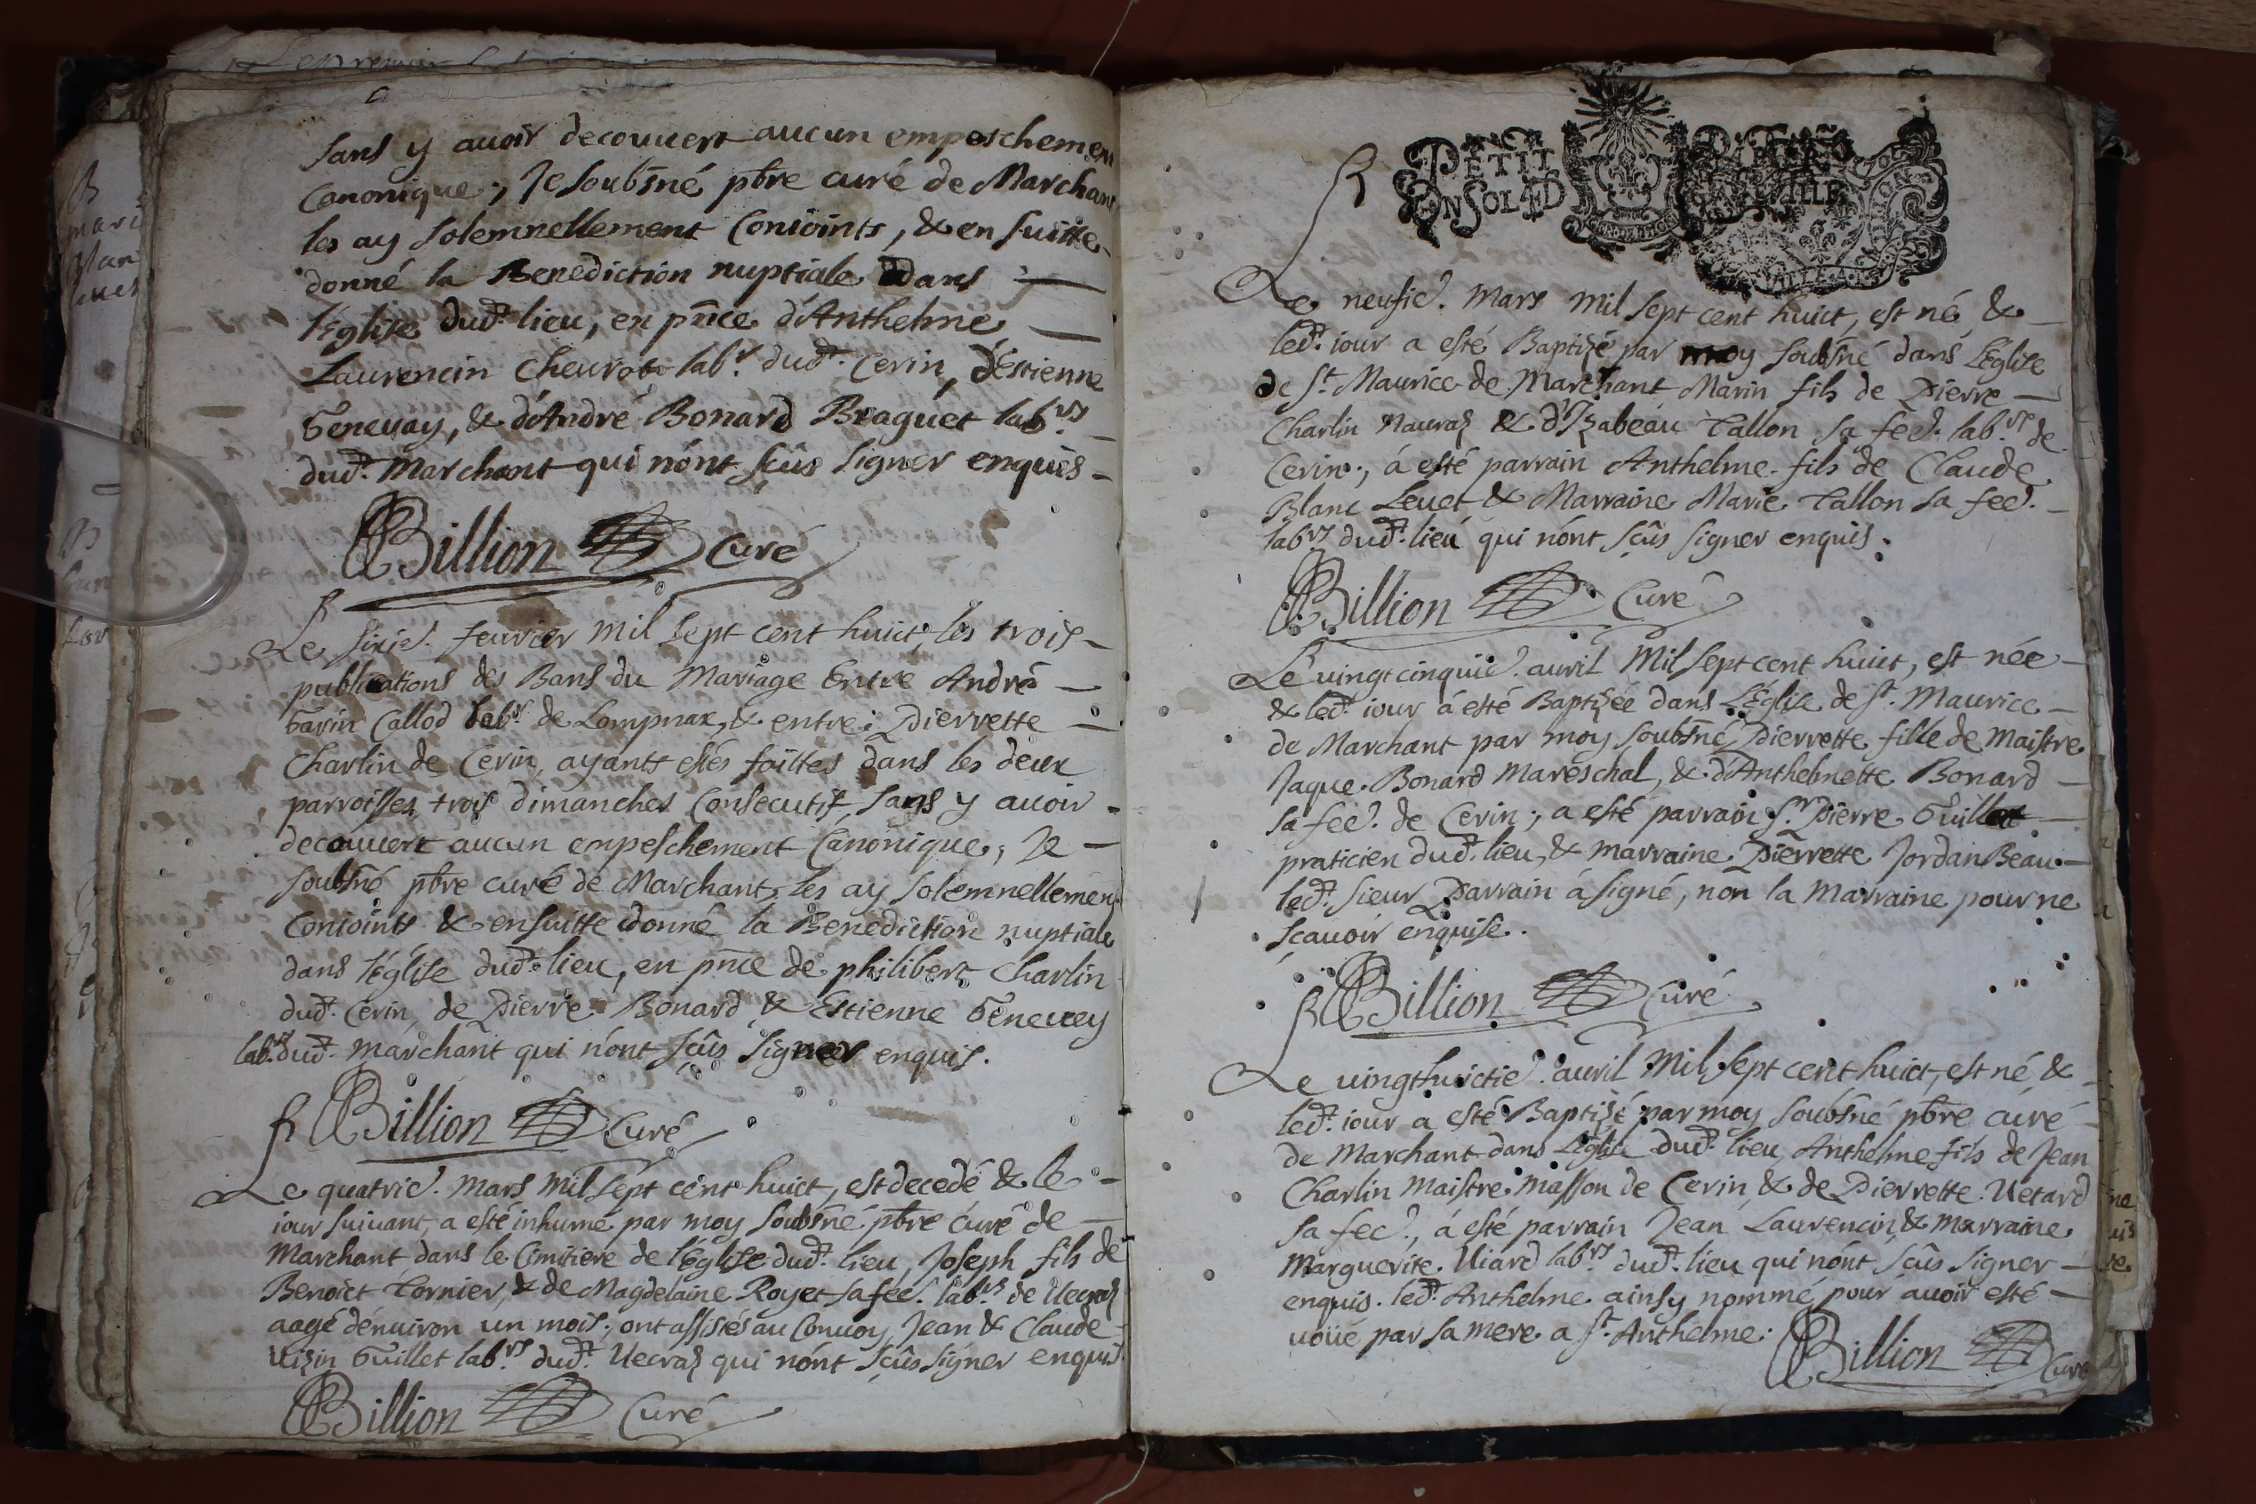 sans y auoir decouuert aucun empeschement
Canonique, Je soubsné pbre curé de Marchant
les ay solemnellement Conioints, & en suitte
donné la Benediction nuptiale dans
l'Église dud.t lieu, en pñce d'Anthelme
Laurencin Cheurot lab.r dud.t Cerin, d'Estienne
Geneuay, & d'André Bonard Braguet lab.rs
dud.t Marchant qui n'ont sçûs signer enquis
Billion Curé
Le sixie. feurier mil sept cent huict, les trois
publications des Bans du Mariage Entre André
Garin Callod lab.r de Lompnax, & entre Pierrette
Charlin de Cerin, ayants estés faittes dans les deux
parroisses trois dimanches Consecutifs, sans y auoir
decouuert aucun empeschement Canonique, Je
soubsné pbre curé de Marchant, les ay solemnellement
Conioints & ensuitte donné la Benediction nuptiale
dans l'Église dud.t lieu, en pñce de philibert Charlin
dud.t Cerin, de Pierre Bonard & Estienne Geneuey
lab.rs dud.t Marchant qui n'ont sçûs signer enquis.
Billion Curé
Le quatrie. Mars mil sept cent huict, est decedé & le
iour suiuant, a esté inhumé par moy soubsné pbre curé de
Marchant dans le Cimitiere de l'Église dud.t lieu, Joseph fils de
Benoict Tornier, & de Magdelaine Royet sa fee. lab.rs de Uecraz
aagé d'énuiron un mois, ont assistés au Conuoy Jean & Claude
Uizin Guillet lab.rs dud.t Uecraz qui n'ont sçûs signer enquis.
Billion Curé
PETIT PAPIER
EN SOL D
Le neufie. Mars mil sept cent huict, est né &
led.t iour a esté Baptizé par moy soubsné dans l'Église
de S.t Maurice de Marchant Marin fils de Pierre
Charlin Nauraz & d'Izabeau Tallon sa fee. lab.rs de
Cerin, á esté parrain Anthelme fils de Claude
Blanc Leuet & Marraine Marie Tallon sa fee.
lab.rs dud.t lieu qui n'ont sçûs signer enquis.
Billion Curé
Le uingt cinquie. auril Mil sept cent huict, est née
& led.t iour á esté Baptizée dans L'Église de S.t Maurice
de Marchant par moy soubsné Pierrette fille de Maistre
Jaque Bonard Mareschal, & d'Anthelmette Bonard
sa fee. de Cerin, a esté parrain S.r Pierre Guillot
praticien dud.t lieu, & marraine Pierrette Jordan Beau
led.t Sieur Parrain á signé, non la Marraine pour ne
sçauoir enquise.
Billion Curé
Le uingthuictie. auril Mil sept cent huict, est né &
led.t iour a esté Baptizé par moy soubsné pbre curé
de Marchant dans L'Église dud.t lieu Anthelme fils de Jean
Charlin Maistre Masson de Cerin & de Pierrette Uetard
sa fee., á esté parrain Jean Laurencin & marraine
Marguerite Uiard lab.rs dud.t lieu qui n'ont sçûs signer
enquis. led.t Anthelme ainsy nommé pour auoir esté
uoüé par sa mere a S.t Anthelme.
Billion Curé